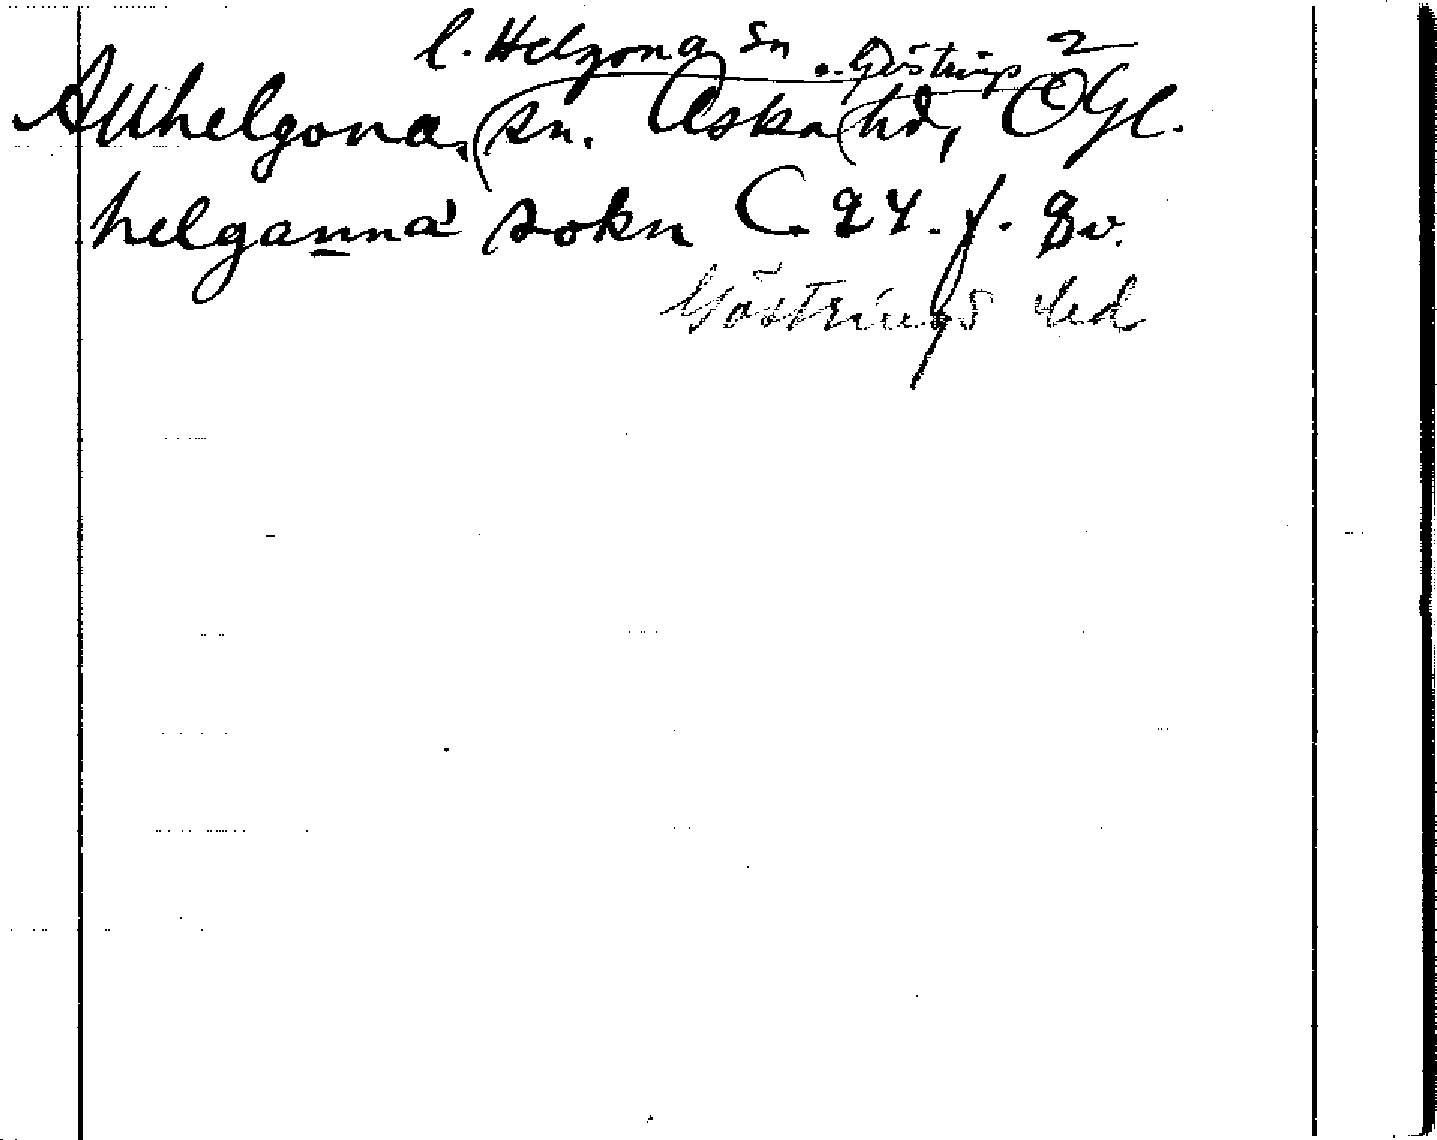 l. Helgona sn o. Göstrings 2
Allhelgona, sn. Aska hd, Ögl.
helganna sokn C 24. f. 8 v.
Göstrings hd